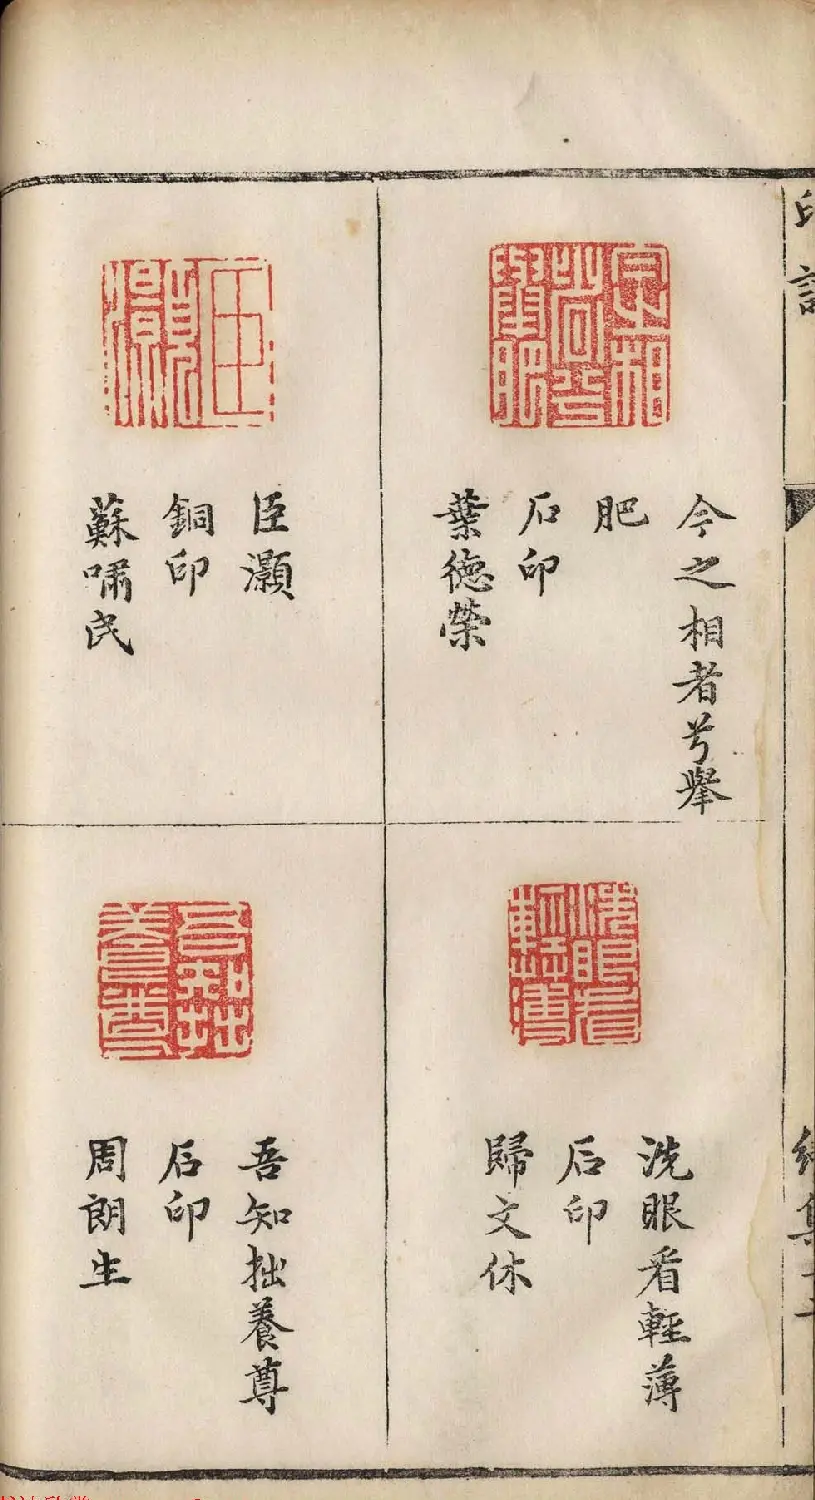 今之相者兮舉
肥
石印
葉德榮
臣灝
銅印
蘇嘯民
洗眼看輕薄
石印
歸文休
吾知拙養尊
石印
周朗生